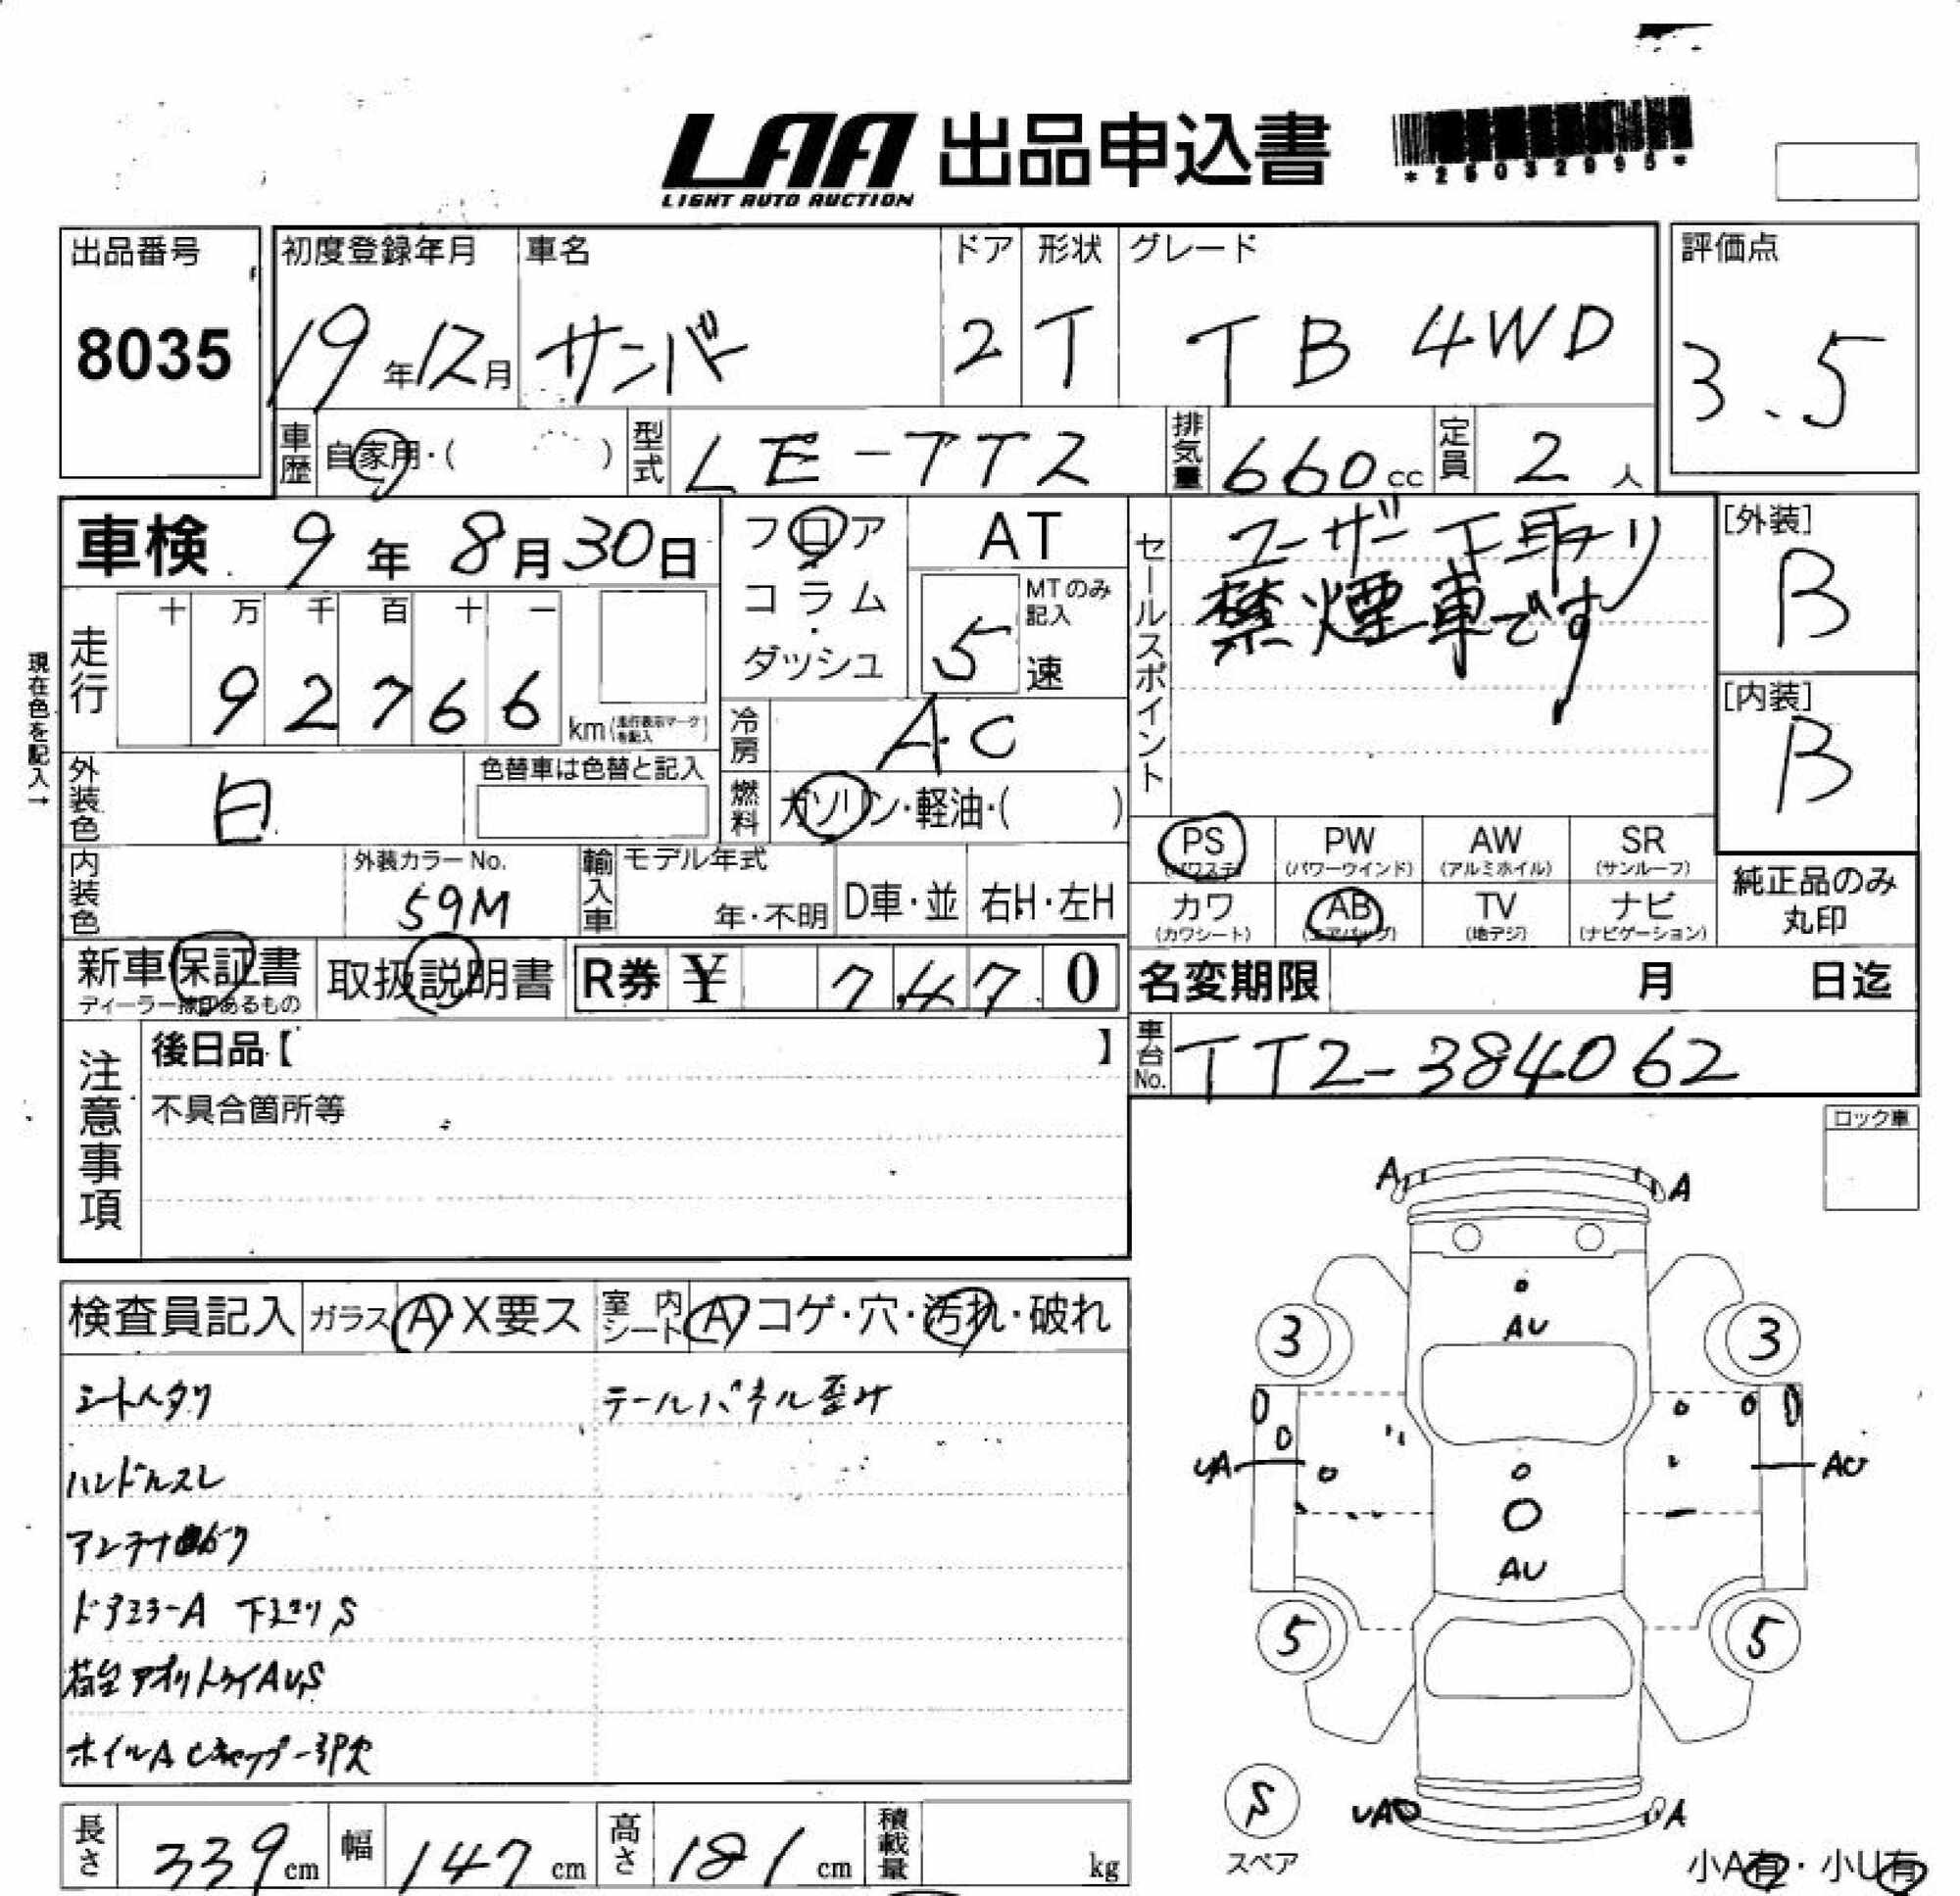 LAA 出品申込書
LIGHT AUTO AUCTION
*26032995*
出品番号
8035
初度登録年月
19年12月
車名
サンバー
ドア
2
形状
T
グレード
TB 4WD
評価点
3.5
車歴
自家用・( )
型式
LE-TT2
排気量
660cc
定員
2人
車検 9年8月30日
フロア
コラム
・
ダッシュ
AT
MTのみ記入
5速
セールスポイント
ユーザー下取り
禁煙車です
[外装]
B
[内装]
B
現在色を記入→
走行
十 万 千 百 十 一
9 2 7 6 6
km(走行表示マークを記入)
冷房
AC
外装色
白
色替車は色替と記入
燃料
ガソリン・軽油・( )
PS PW AW SR
(パワステ) (パワーウインド) (アルミホイル) (サンルーフ)
カワ AB TV ナビ
(カワシート) (エアバッグ) (地デジ) (ナビゲーション)
純正品のみ
丸印
内装色
外装カラーNo.
59M
輸入車
モデル年式
年・不明
D車・並
右H・左H
新車保証書
ディーラー捺印あるもの
取扱説明書
R券 ¥ 7,470
名変期限 月 日迄
車台No.
TT2-384062
注意事項
後日品【 】
不具合箇所等
ロック車
検査員記入
ガラス A X要ス
室内シート A コゲ・穴・汚れ・破れ
シートヘタリ
テールパネル歪み
ハンドルスレ
アンテナ曲がり
ドアミラーA 下廻りS
荷台アオリトリイAUS
ホイルA Cキャップ一部欠
A A
AU
3 3
UA AU
AU
5 5
S
スペア
UA A
小A有・小U有
長さ
339cm
幅
147cm
高さ
181cm
積載量
kg